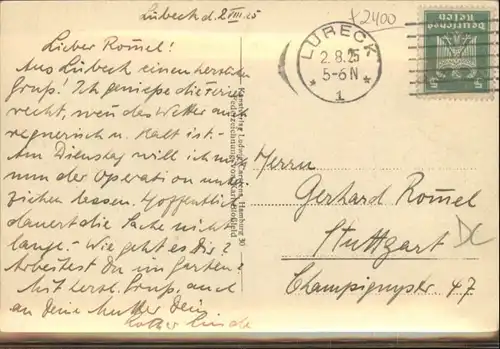 Lübeck d. 2 VIII 25
x 2400
Lieber Romel!
Aus Lübeck einen herzlichen
Gruß! Ich genieße die Ferien
recht, wenn das Wetter auch
regnerisch u. kalt ist. -
Am Dienstag will ich mich
nun der Operation unter
ziehen lassen. Hoffentlich
dauert die Sache nicht
lange. - Wie geht es Dir?
Arbeitest Du im Garten?
Mit herzl. Gruß, auch
an Deine Mutter Dein
LÜBECK
2.8.25
5-6 N
* 1 *
Deutsches
Reich
5 5
Kunstverlag Ludwig Carstens, Hamburg 30
Federzeichnung von Karl Bloßfeld
Herrn
Gerhard Romel
Stuttgart
Champignystr 47